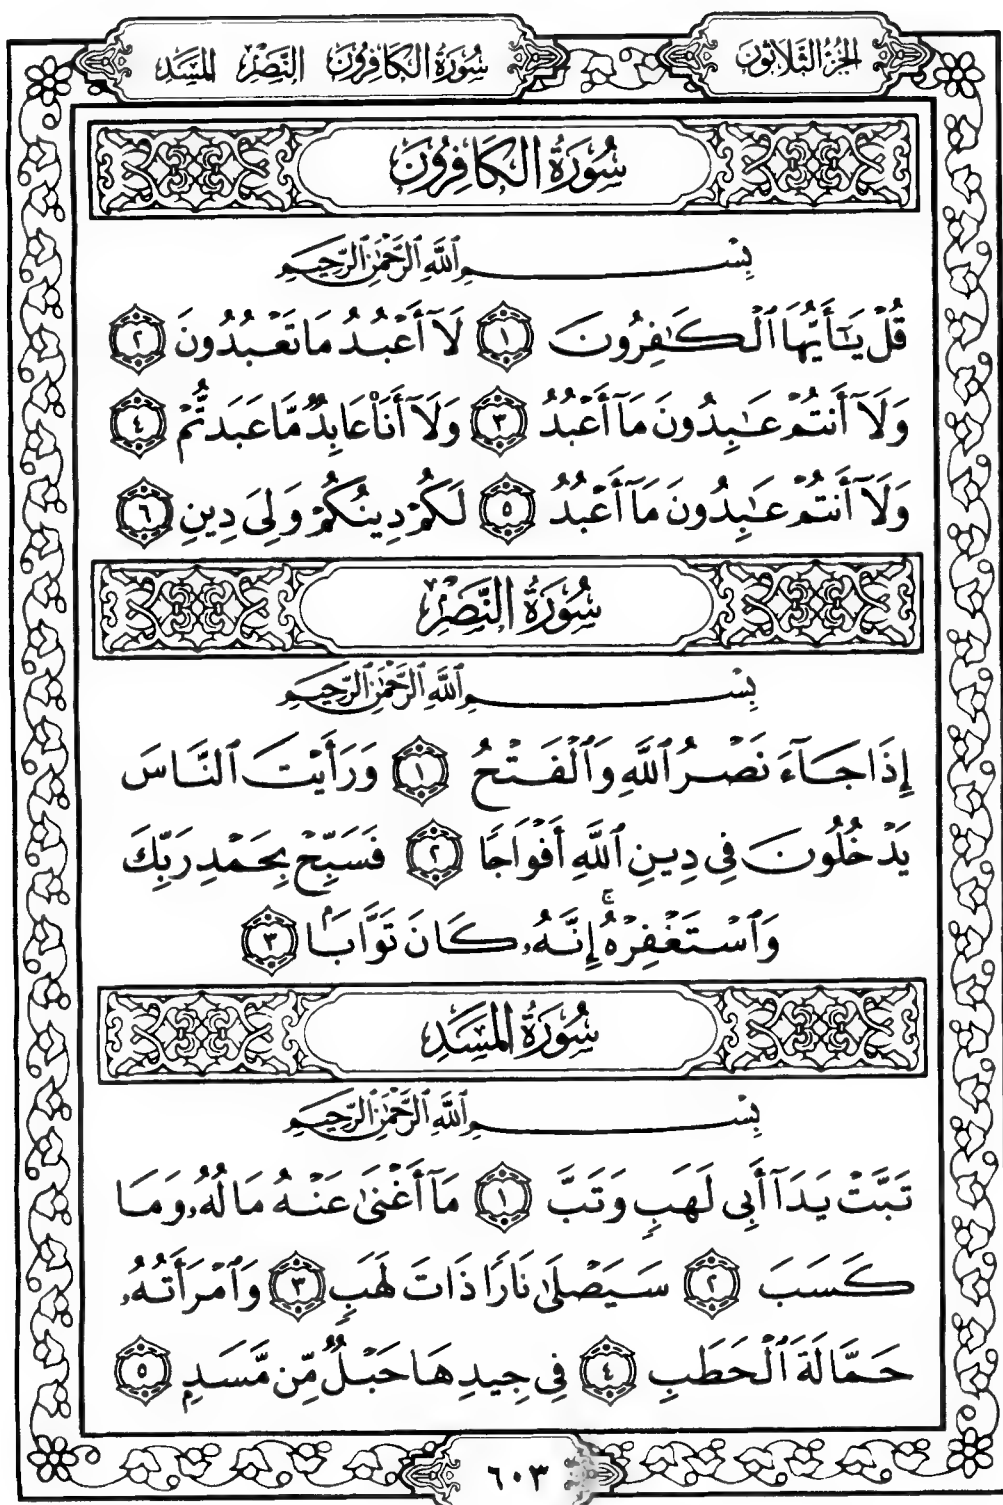 الجُزءُ الثَّلَاثُونَ
سُورَةُ الكَافِرُونَ النَّصْرِ المَسَدِ
سُورَةُ الكَافِرُونَ
بِسْمِ ٱللَّهِ ٱلرَّحْمَٰنِ ٱلرَّحِيمِ
قُلْ يَـٰٓأَيُّهَا ٱلْكَـٰفِرُونَ ١ لَآ أَعْبُدُ مَا تَعْبُدُونَ ٢
وَلَآ أَنتُمْ عَـٰبِدُونَ مَآ أَعْبُدُ ٣ وَلَآ أَنَا۠ عَابِدٌ مَّا عَبَدتُّمْ ٤
وَلَآ أَنتُمْ عَـٰبِدُونَ مَآ أَعْبُدُ ٥ لَكُمْ دِينُكُمْ وَلِىَ دِينِ ٦
سُورَةُ النَّصْرِ
بِسْمِ ٱللَّهِ ٱلرَّحْمَٰنِ ٱلرَّحِيمِ
إِذَا جَآءَ نَصْرُ ٱللَّهِ وَٱلْفَتْحُ ١ وَرَأَيْتَ ٱلنَّاسَ
يَدْخُلُونَ فِى دِينِ ٱللَّهِ أَفْوَاجًا ٢ فَسَبِّحْ بِحَمْدِ رَبِّكَ
وَٱسْتَغْفِرْهُ ۚ إِنَّهُۥ كَانَ تَوَّابَۢا ٣
سُورَةُ المَسَدِ
بِسْمِ ٱللَّهِ ٱلرَّحْمَٰنِ ٱلرَّحِيمِ
تَبَّتْ يَدَآ أَبِى لَهَبٍ وَتَبَّ ١ مَآ أَغْنَىٰ عَنْهُ مَالُهُۥ وَمَا
كَسَبَ ٢ سَيَصْلَىٰ نَارًا ذَاتَ لَهَبٍ ٣ وَٱمْرَأَتُهُۥ
حَمَّالَةَ ٱلْحَطَبِ ٤ فِى جِيدِهَا حَبْلٌ مِّن مَّسَدٍۭ ٥
٦٠٣